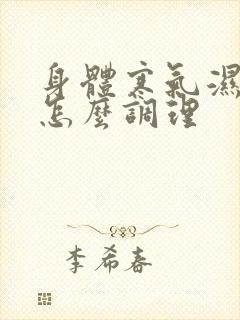 身體寒氣濕
怎麼調理
李希春